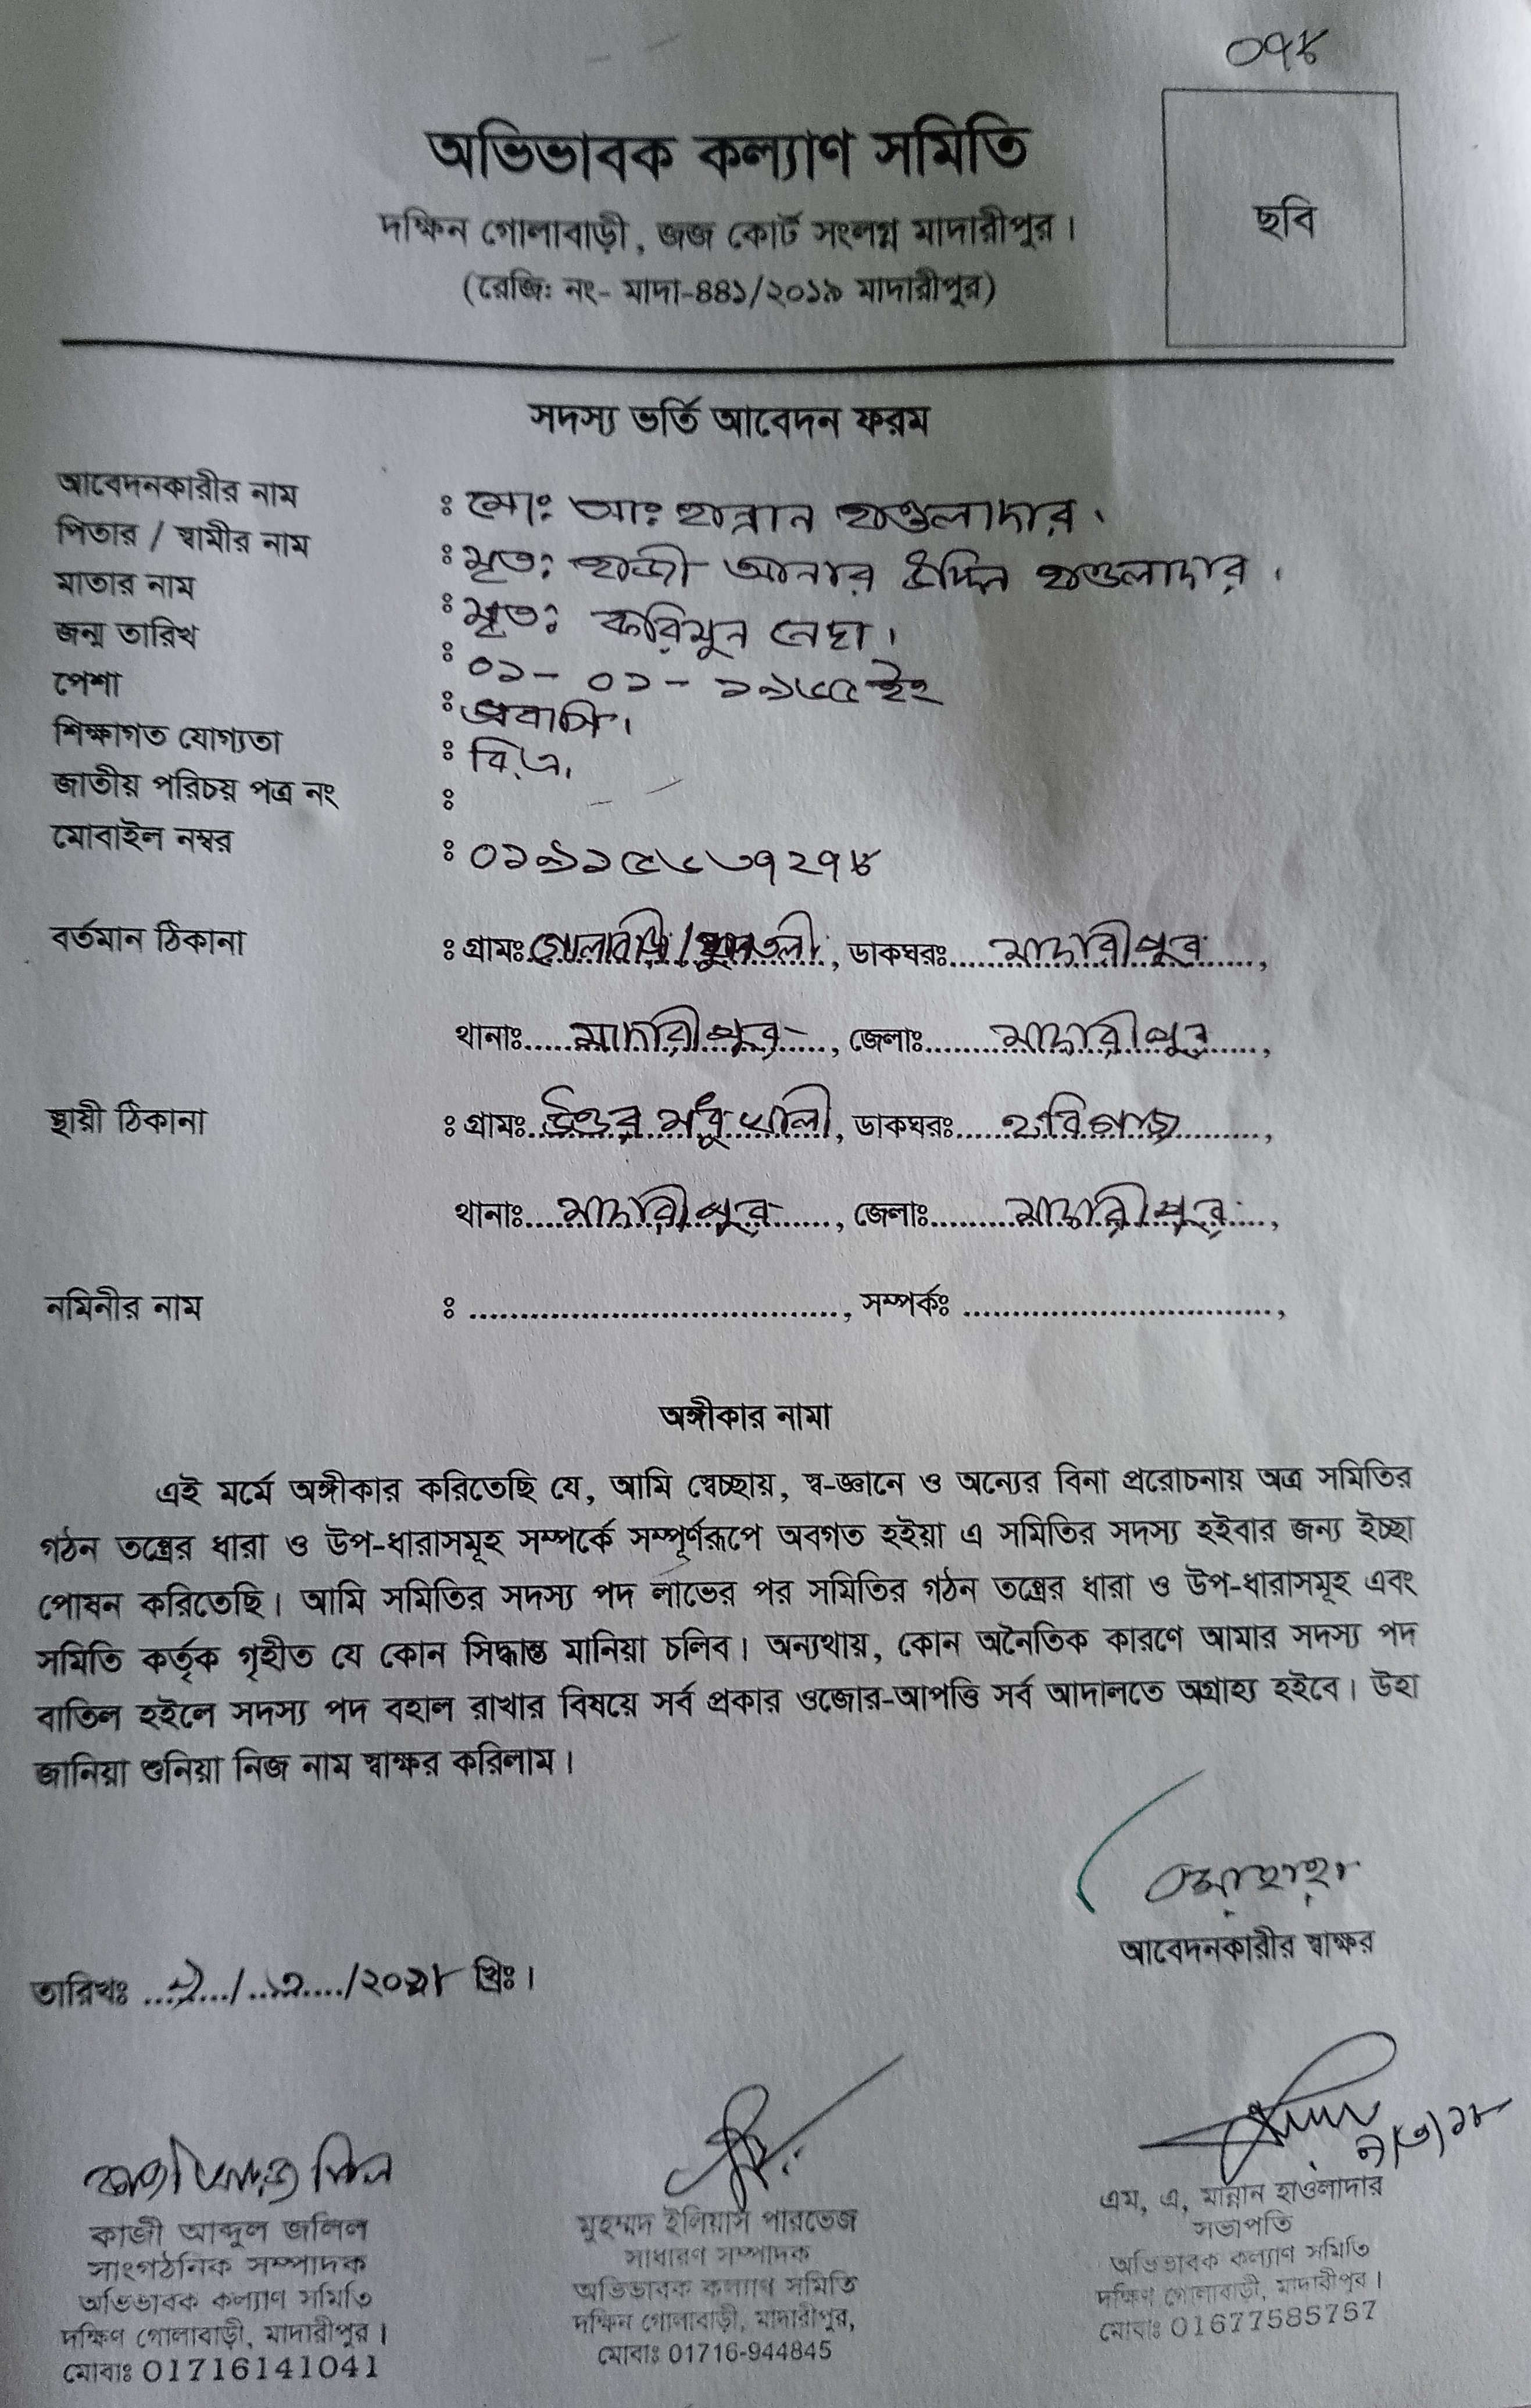 ০৭৪
অভিভাবক কল্যাণ সমিতি
দক্ষিন গোলাবাড়ী, জজ কোর্ট সংলগ্ন মাদারীপুর।
(রেজি: নং- মাদা-৪৪১/২০১৯ মাদারীপুর)
ছবি
সদস্য ভর্তি আবেদন ফরম
আবেদনকারীর নাম : মো: আ: হান্নান হাওলাদার।
পিতার / স্বামীর নাম : মৃত: হাজী আনার উদ্দিন হাওলাদার।
মাতার নাম : মৃত: করিমুন নেছা।
জন্ম তারিখ : ০১- ০১- ১৯৬৫ ইং
পেশা : প্রবাসি।
শিক্ষাগত যোগ্যতা : বি.এ.
জাতীয় পরিচয় পত্র নং :
মোবাইল নম্বর : ০১৯১৫৬৩৭২৭৪
বর্তমান ঠিকানা : গ্রামঃ গোলাবাড়ী / , ডাকঘরঃ মাদারীপুর,
থানাঃ মাদারীপুর, জেলাঃ মাদারীপুর,
স্থায়ী ঠিকানা : গ্রামঃ উত্তর দুধখালী, ডাকঘরঃ ,
থানাঃ মাদারীপুর, জেলাঃ মাদারীপুর,
নমিনীর নাম : ...................................., সম্পর্কঃ ..............................,
অঙ্গীকার নামা
এই মর্মে অঙ্গীকার করিতেছি যে, আমি স্বেচ্ছায়, স্ব-জ্ঞানে ও অন্যের বিনা প্ররোচনায় অত্র সমিতির
গঠন তন্ত্রের ধারা ও উপ-ধারাসমূহ সম্পর্কে সম্পূর্ণরূপে অবগত হইয়া এ সমিতির সদস্য হইবার জন্য ইচ্ছা
পোষন করিতেছি। আমি সমিতির সদস্য পদ লাভের পর সমিতির গঠন তন্ত্রের ধারা ও উপ-ধারাসমূহ এবং
সমিতি কর্তৃক গৃহীত যে কোন সিদ্ধান্ত মানিয়া চলিব। অন্যথায়, কোন অনৈতিক কারণে আমার সদস্য পদ
বাতিল হইলে সদস্য পদ বহাল রাখার বিষয়ে সর্ব প্রকার ওজোর-আপত্তি সর্ব আদালতে অগ্রাহ্য হইবে। উহা
জানিয়া শুনিয়া নিজ নাম স্বাক্ষর করিলাম।
আবেদনকারীর স্বাক্ষর
তারিখঃ / /২০ খ্রিঃ।
কাজী আব্দুল জলিল
সাংগঠনিক সম্পাদক
অভিভাবক কল্যাণ সমিতি
দক্ষিণ গোলাবাড়ী, মাদারীপুর।
মোবাঃ 01716141041
মুহম্মদ ইলিয়াস পারভেজ
সাধারণ সম্পাদক
অভিভাবক কল্যাণ সমিতি
দক্ষিন গোলাবাড়ী, মাদারীপুর,
মোবাঃ 01716-944845
এম, এ, মান্নান হাওলাদার
সভাপতি
অভিভাবক কল্যাণ সমিতি
দক্ষিণ গোলাবাড়ী, মাদারীপুর।
মোবাঃ 01677585767